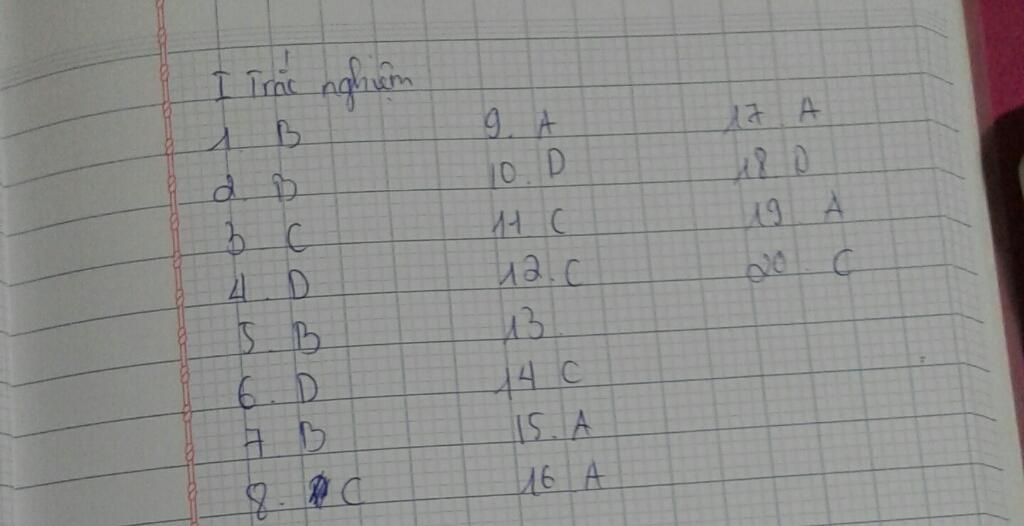 I Trắc nghiệm
1. B
2. B
3 C
4. D
5 B
6. D
7 B
8. C
9. A
10. D
11 C
12. C
13.
14 C
15. A
16 A
17 A
18 D
19 A
20. C